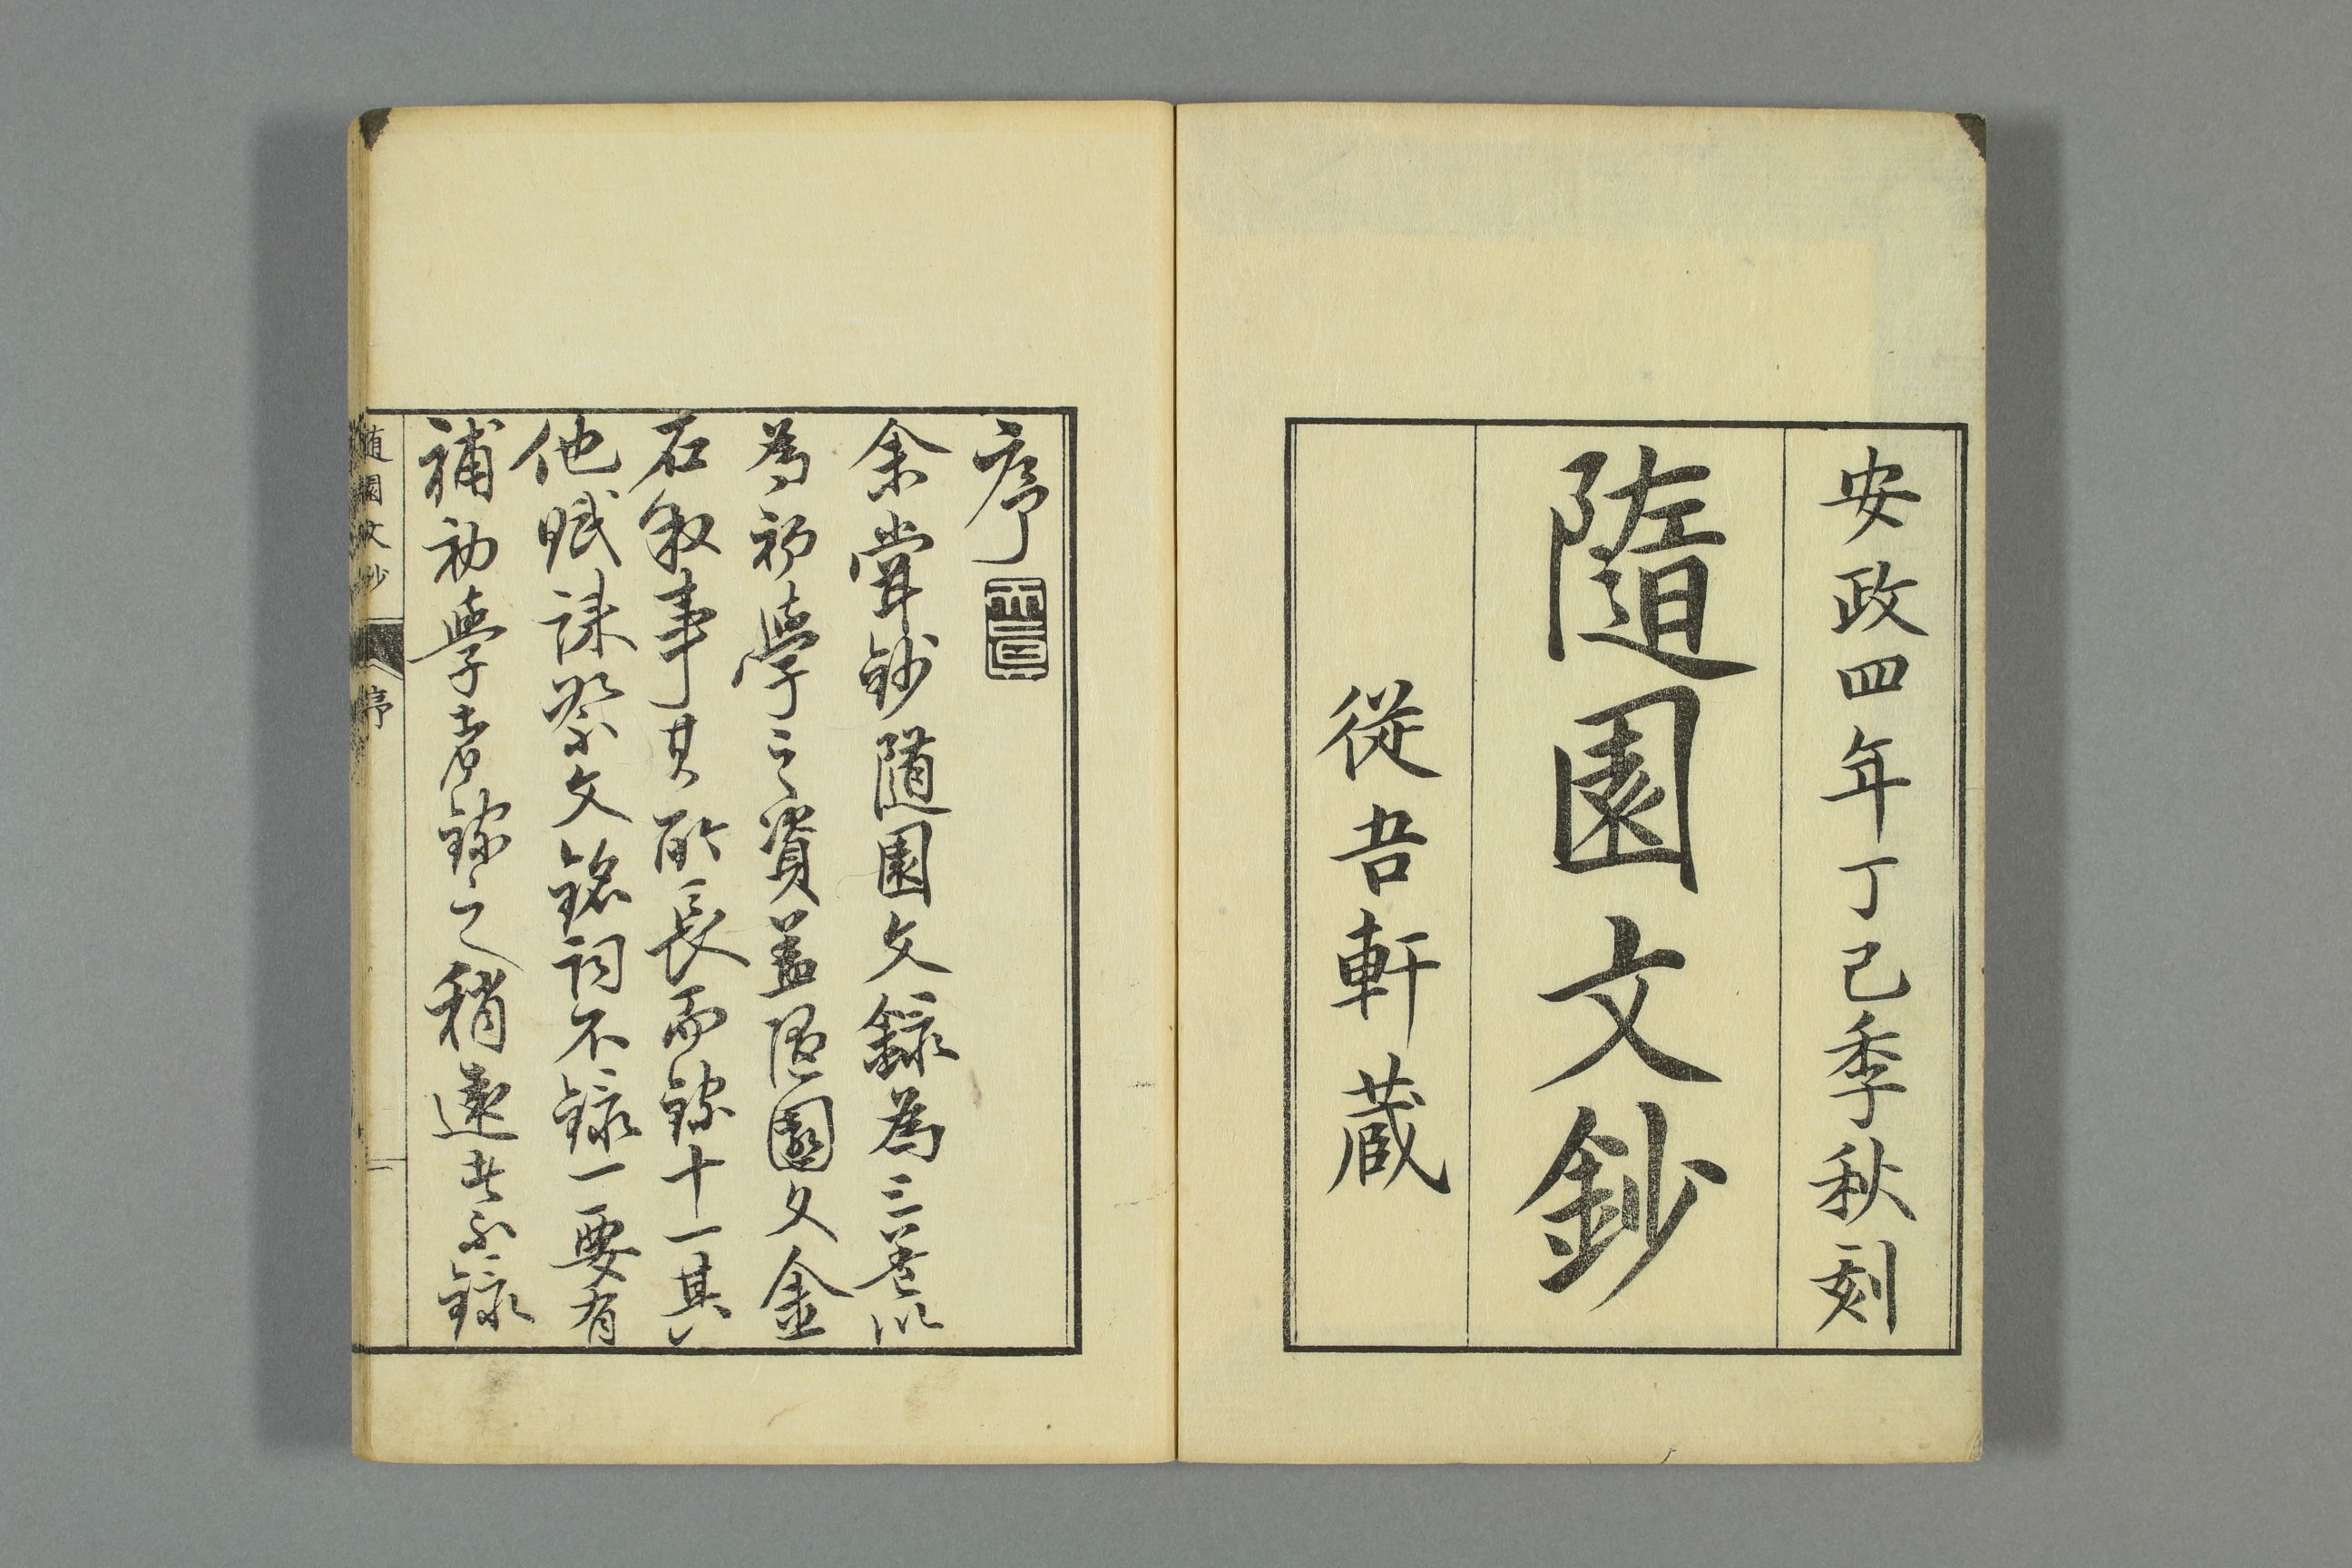 安政四年丁巳季秋刻
隨園文鈔
從吾軒藏
序
余嘗鈔隨園文錄為三卷以
為初學之資蓋隨園文金
石敘事其所長而錄十一其
他賦誄祭文銘詞不錄一要有
補初學者錄之稍遠者不錄
隨園文鈔 序